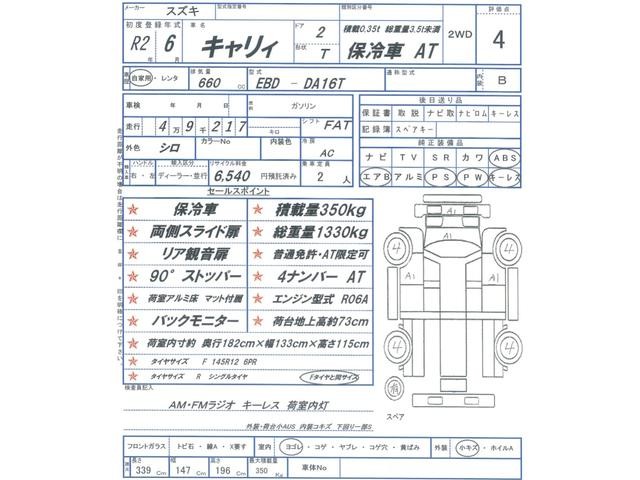 メーカー スズキ 型式指定番号 類別区分番号 評価点
初度登録年式 車名 ドア 積載0.35t 総重量3.5t未満 2WD 4
R2 年 6 月 キャリィ 2 形状 T 保冷車 AT
車歴 自家用・レンタ 排気量 660 CC 型式 EBD - DA16T 通称型式 内装 B
車検 年 月 日 燃料 ガソリン 後日送り品
走行 4万9千217 キロ シフト FAT 保証書 取説 ナビ取 ナビロム キーレス
記録簿 スペアキー
外色 シロ カラーNo 内装色 冷房 AC 純正装備品
ハンドル 輸入区分 リサイクル料金 乗車定員 ナビ TV SR カワ ABS
輸入車 右・左 ディーラー・並行 6,540 円預託済み 2 人 エアB アルミ PS PW キーレス
走行距離が不明の場合は走行距離欄に
印を明確につけて下さい。
セールスポイント
保冷車 積載量350kg
両側スライド扉 総重量1330kg
リア観音扉 普通免許・AT限定可
90°ストッパー 4ナンバー AT
荷室アルミ床 マット付属 エンジン型式 R06A
バックモニター 荷台地上高約73cm
荷室内寸約 奥行182cm×幅133cm×高さ115cm
タイヤサイズ F 145R12 6PR
タイヤサイズ R シングルタイヤ Fタイヤと同サイズ
A1
4 4
A1 A1
4 4
スペア
検査員記入
AM・FMラジオ キーレス 荷室内灯
外装・荷台小AUS 内装コキズ 下回り一部S
フロントガラス トビ石・線A・X要す 室内 ヨゴレ・コゲ・ヤブレ・コゲ穴・黄ばみ 外装 小キズ・ホイルA
長さ 339 Cm 幅 147 Cm 高さ 196 Cm 最大積載量 350 Kg 車体No